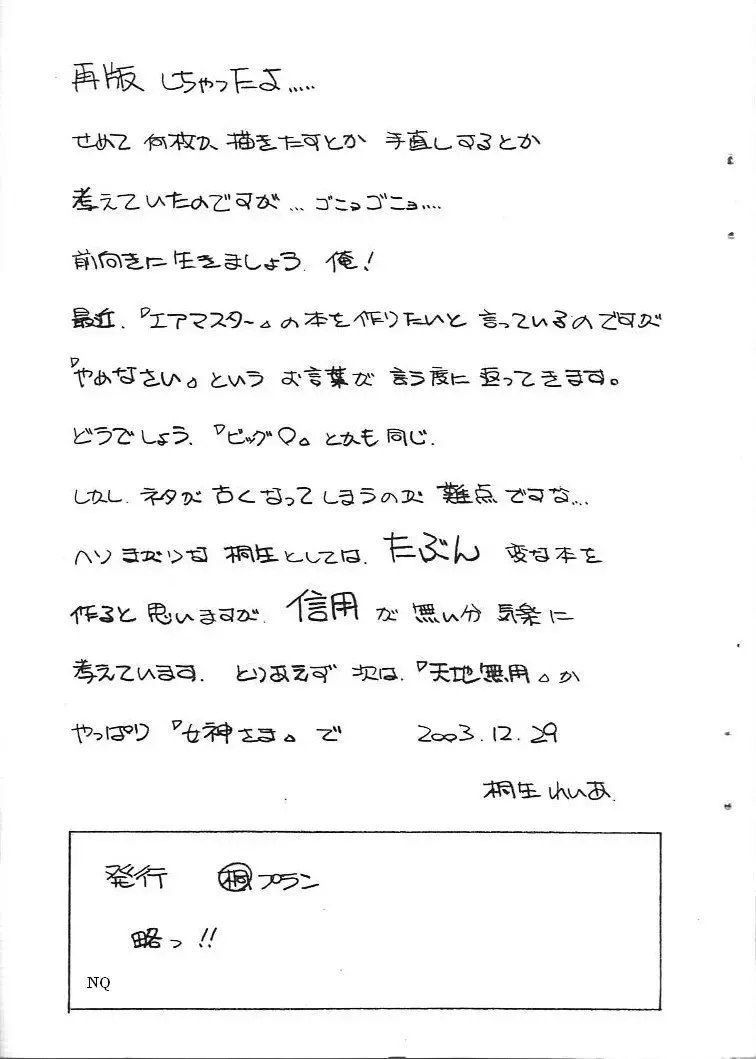 再版 しちゃったよ.....
せめて 何枚か 描きたすとか 手直しするとか
考えていたのですが... ゴニョゴニョ....
前向きに生きましょう. 俺!
最近.『エアマスター』の本を作りたいと 言っているのですが
『やめなさい』という お言葉が 言う度に 返ってきます。
どうでしょう.『ビッグO』とかも同じ.
しかし. ネタが 古くなってしまうのが 難点ですな...
ヘソまがりな 桐生としては. たぶん 変な本を
作ると思いますが. 信用 が 無い分 気楽に
考えています. とりあえず 次は.『天地無用』か
やっぱり『女神さま』で 2003.12.29
桐生れいあ.
発行 ㊞プラン
略っ!!
NQ